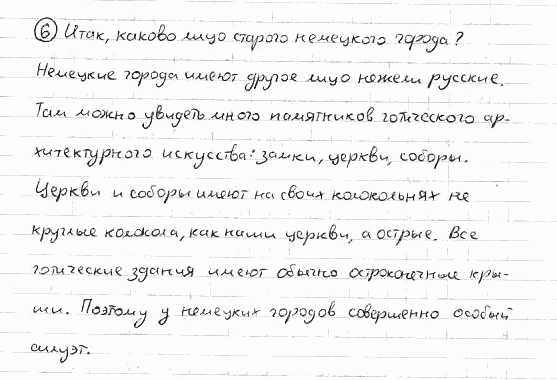 6 Итак, каково лицо старого немецкого города?
Немецкие города имеют другое лицо нежели русские.
Там можно увидеть много памятников готического ар-
хитектурного искусства: замки, церкви, соборы.
Церкви и соборы имеют на своих колокольнях не
круглые колокола, как наши церкви, а острые. Все
готические здания имеют обычно остроконечные кры-
ши. Поэтому у немецких городов совершенно особый
силуэт.